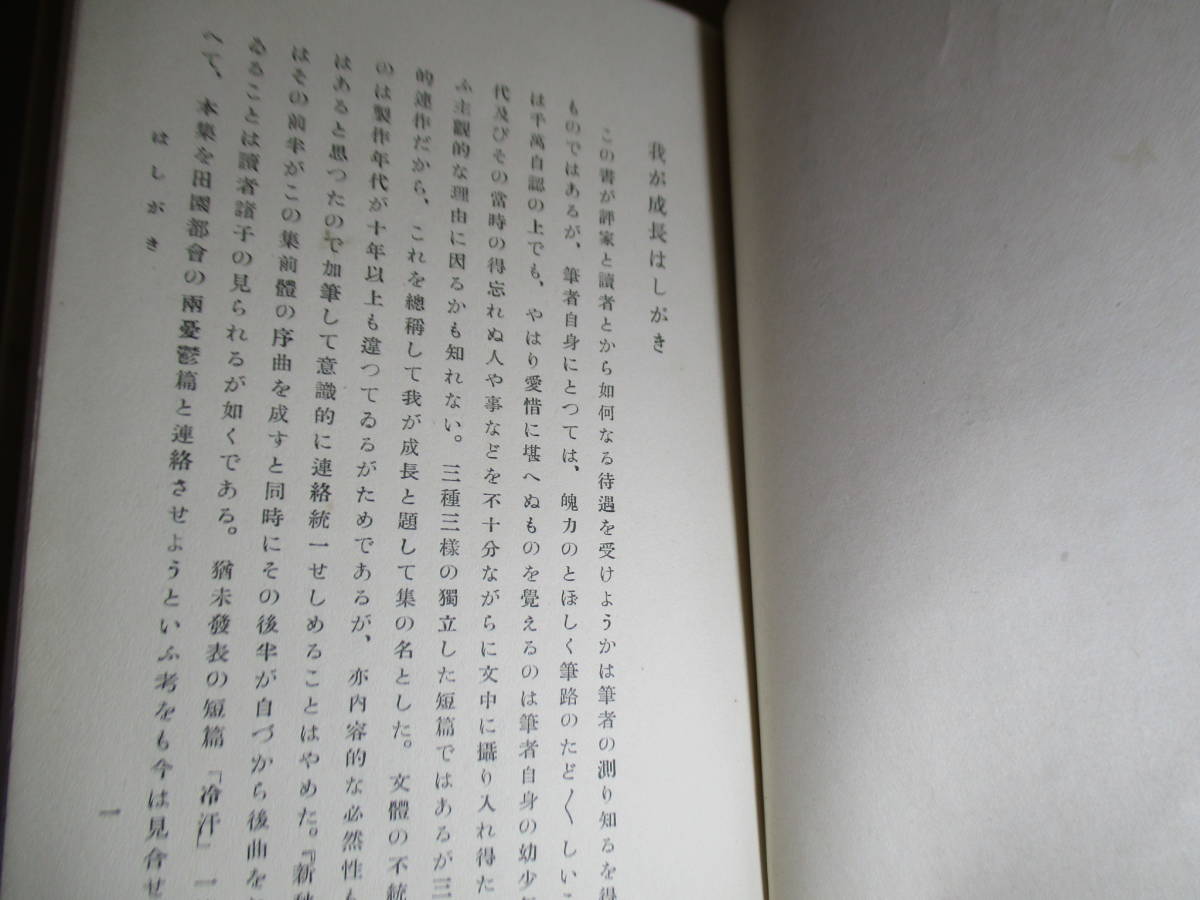 我が成長はしがき
この書が評家と讀者とから如何なる待遇を受けようかは筆者の測り知るを得
ものではあるが、筆者自身にとつては、魄力のとぼしく筆路のたど〱しいこ
は千萬自認の上でも、やはり愛惜に堪へぬものを覺えるのは筆者自身の幼少年
代及びその當時の得忘れぬ人や事などを不十分ながらに文中に攝り入れ得た
ふ主觀的な理由に因るかも知れない。三種三樣の獨立した短篇ではあるが三
的連作だから、これを總稱して我が成長と題して集の名とした。文體の不統
のは製作年代が十年以上も違つてゐるがためであるが、亦內容的な必然性も
はあると思つたので加筆して意識的に連絡統一せしめることはやめた。『新秋
はその前半がこの集前體の序曲を成すと同時にその後半が自づから後曲を
ゐることは讀者諸子の見られるが如くである。猶未發表の短篇「冷汗」一
へて、本集を田園都會の兩憂鬱篇と連絡させようといふ考をも今は見合せ
はしがき
一